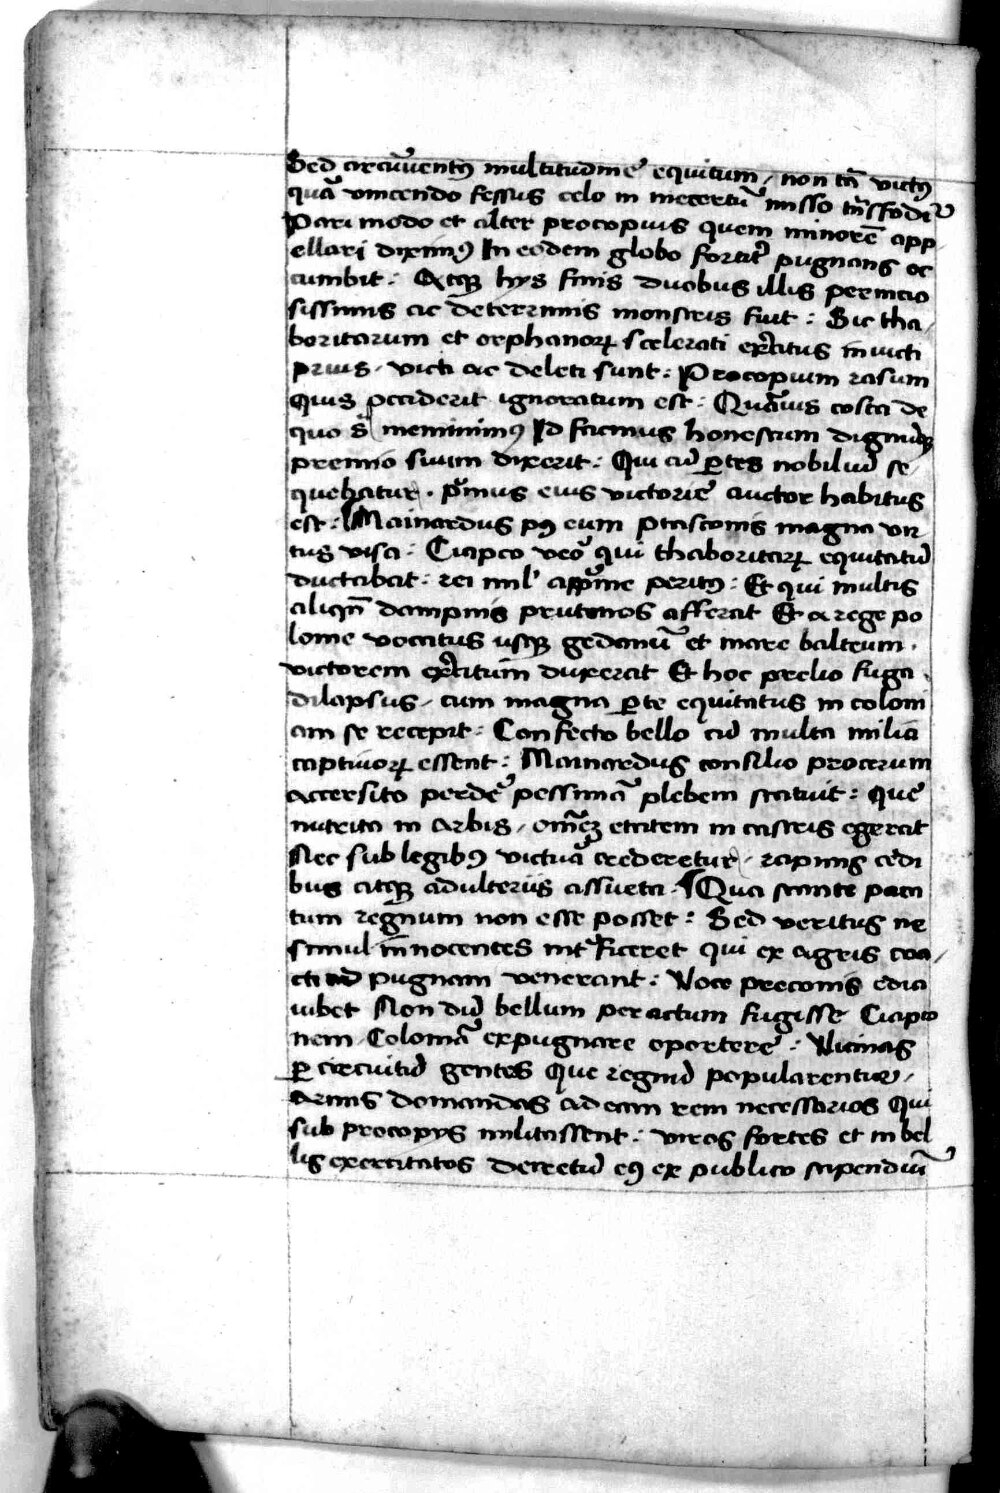 Sed circūuentꝰ multitudine equitum / non tā victꝰ
quā vincendo fessus celo in incertū misso trāsfodit᷑
Pari modo et alter procopius quem minorē app
ellari diximꝰ In eodem globo fortit᷑ pugnans oc
cumbit : Atqꝫ hys finis duobus illis pernicio
sissimis ac deterrimis monstris fuit : Sic tha/
boritarum et orphanoꝝ scelerati ex̄citus inuicti
prius / victi ac deleti sunt : Procopium rasum
Quis ꝑciderit ignoratum est : Quāuis costa de
quo sͣ meminimꝰ Id facinus honestum dignūqꝫ
premio suum dixerit : Qui cū ꝑtes nobiliū se/
quebatur . pͥmus eius victorie auctor habitus
est : Mainardus pꝰ eum ptasconis magna vir
tus visa : Ciapco veͦ qui thaboritaꝝ equitatū
ductabat : rei mil᷑ appͥme peritꝰ : Et qui multis
aliqn̄ dampnis prutenos afferat Et a rege po
lonie vocatus usqꝫ gedanū et mare balteum .
victorem ex̄citum duxerat Et hoc prelio fuga .
dilapsus / cum magna ꝑte equitatus in coloni
am se recepit : Confecto bello cū multa milia
captiuoꝝ essent : Mainardus consilio procerum
accersito perde᷑ pessimā plebem statuit : Que
nutrita in Arbis / omēꝫ etatem in castris egerat
Nec sub legibꝰ victuā crederetur / rapinis cedi
bus atqꝫ adulteriis assueta : Qua stante paca
tum regnum non esse posset : Sed veritus ne
simul īnnocentes int᷑ficeret qui ex agris coa/
cti ad pugnam venerant : Voce preconis edici
iubet Non dū bellum peractum fugisse Ciapco
nem Colomā expugnare oportere : Vicinas
ꝑ circuitū gentes Que regnū popularentur /
Armis domandas ad eam rem necessarios Qui
sub procopys militassent : viros fortes et in bel
lis exercitatos decretū eꝰ ex publico stipendiū